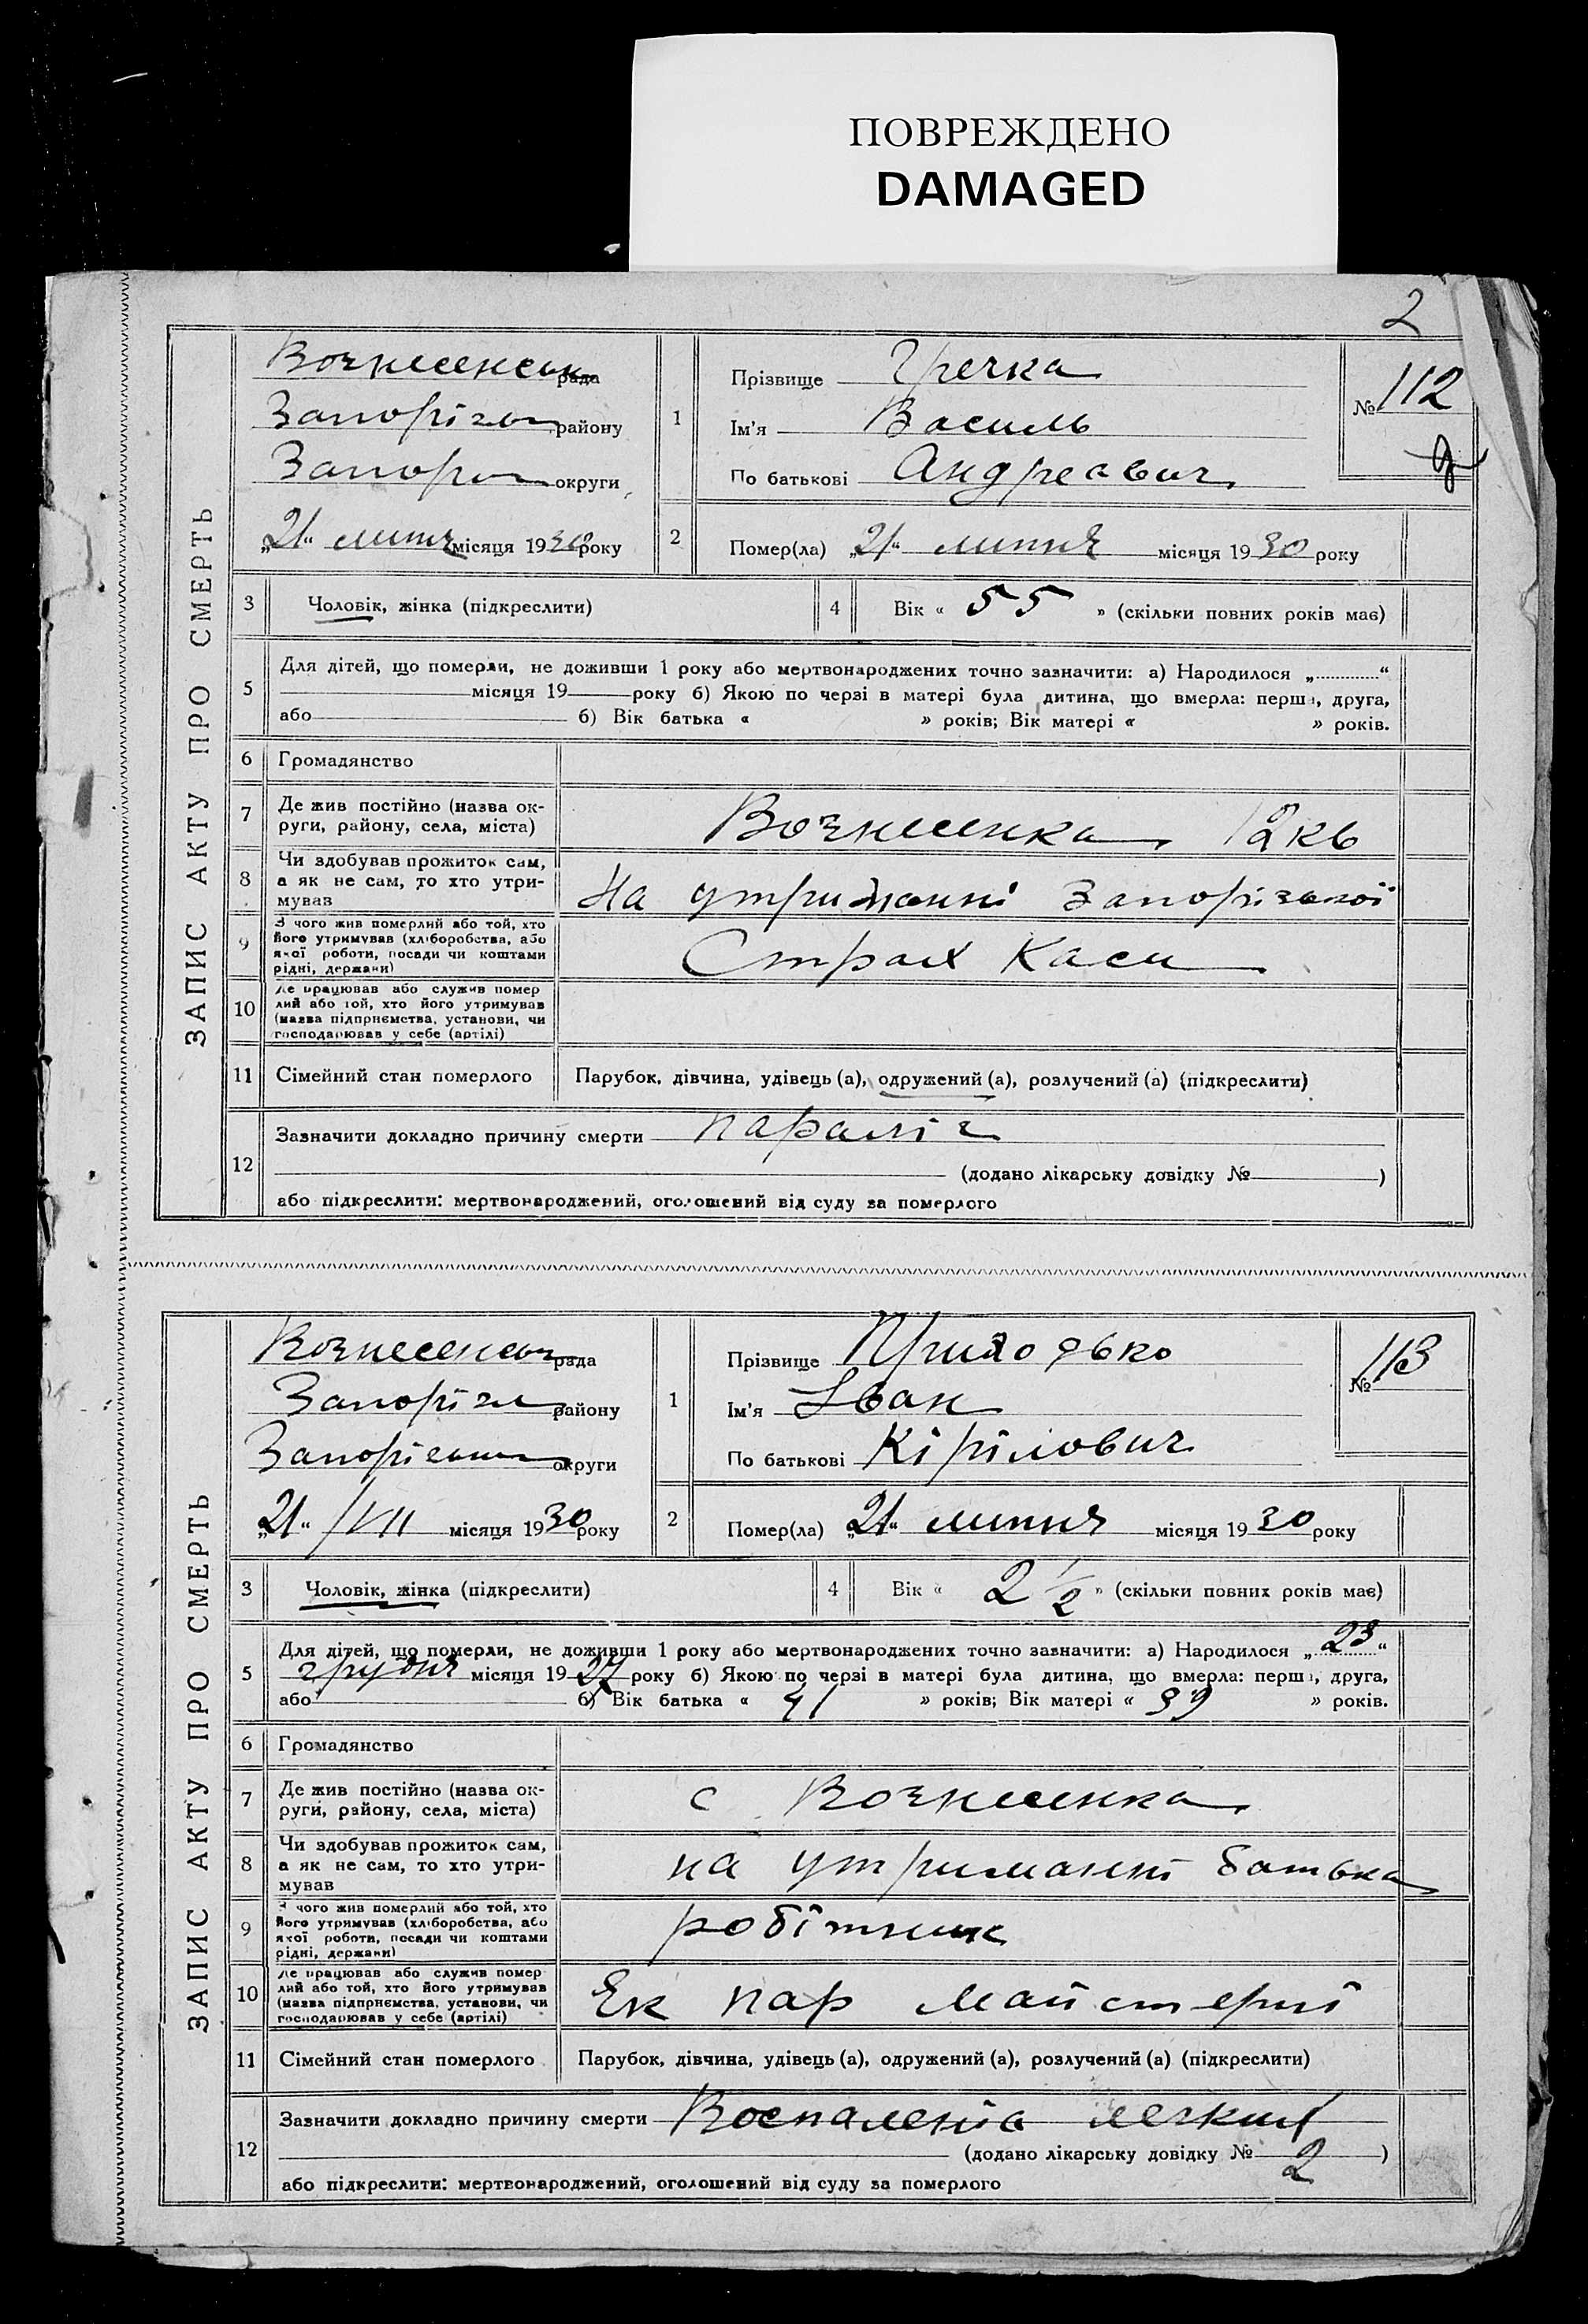 ПОВРЕЖДЕНО
DAMAGED
2
ЗАПИС АКТУ ПРО СМЕРТЬ
Вознесенськ рада
Запорізьк району
Запоріз округи
„21“ липня місяця 1930 року
1
Прізвище Гречка
Ім'я Василь
По батькові Андреевич
№ 112
2
Помер(ла) „21“ липня місяця 1930 року
3
Чоловік, жінка (підкреслити)
4
Вік « 55 » (скільки повних років має)
5
Для дітей, що померли, не доживши 1 року або мертвонароджених точно зазначити: а) Народилося „ “
місяця 19 року б) Якою по черзі в матері була дитина, що вмерла: перша, друга,
або б) Вік батька « » років; Вік матері « » років.
6
Громадянство
7
Де жив постійно (назва ок-
руги, району, села, міста)
Вознесенка 12 кв
8
Чи здобував прожиток сам,
а як не сам, то хто утри-
мував
На утриманні Запорізької
9
З чого жив померлий або той, хто
його утримував (хліборобства, або
якої роботи, посади чи коштами
рідні, держави)
Страх Каси
10
Де працював або служив помер
лий або той, хто його утримував
(назва підприємства, установи, чи
господарював у себе (артілі)
11
Сімейний стан померлого
Парубок, дівчина, удівець (а), одружений (а), розлучений (а) (підкреслити)
12
Зазначити докладно причину смерти параліч
(додано лікарську довідку № )
або підкреслити: мертвонароджений, оголошений від суду за померлого
ЗАПИС АКТУ ПРО СМЕРТЬ
Вознесенськ рада
Запорізьк району
Запорізьк округи
„21“ /VII місяця 1930 року
1
Прізвище Приходько
Ім'я Іван
По батькові Кірілович
№ 113
2
Помер(ла) „21“ липня місяця 1930 року
3
Чоловік, жінка (підкреслити)
4
Вік « 2 1/2 » (скільки повних років має)
5
Для дітей, що померли, не доживши 1 року або мертвонароджених точно зазначити: а) Народилося „23“
грудня місяця 1927 року б) Якою по черзі в матері була дитина, що вмерла: перша, друга,
або б) Вік батька « 41 » років; Вік матері « 39 » років.
6
Громадянство
7
Де жив постійно (назва ок-
руги, району, села, міста)
с Вознесенка
8
Чи здобував прожиток сам,
а як не сам, то хто утри-
мував
на утриманні батька
9
З чого жив померлий або той, хто
його утримував (хліборобства, або
якої роботи, посади чи коштами
рідні, держави)
робітник
10
Де працював або служив помер
лий або той, хто його утримував
(назва підприємства, установи, чи
господарював у себе (артілі)
Ек пар майстерні
11
Сімейний стан померлого
Парубок, дівчина, удівець (а), одружений (а), розлучений (а) (підкреслити)
12
Зазначити докладно причину смерти Воспаленіа легких
(додано лікарську довідку № 2 )
або підкреслити: мертвонароджений, оголошений від суду за померлого